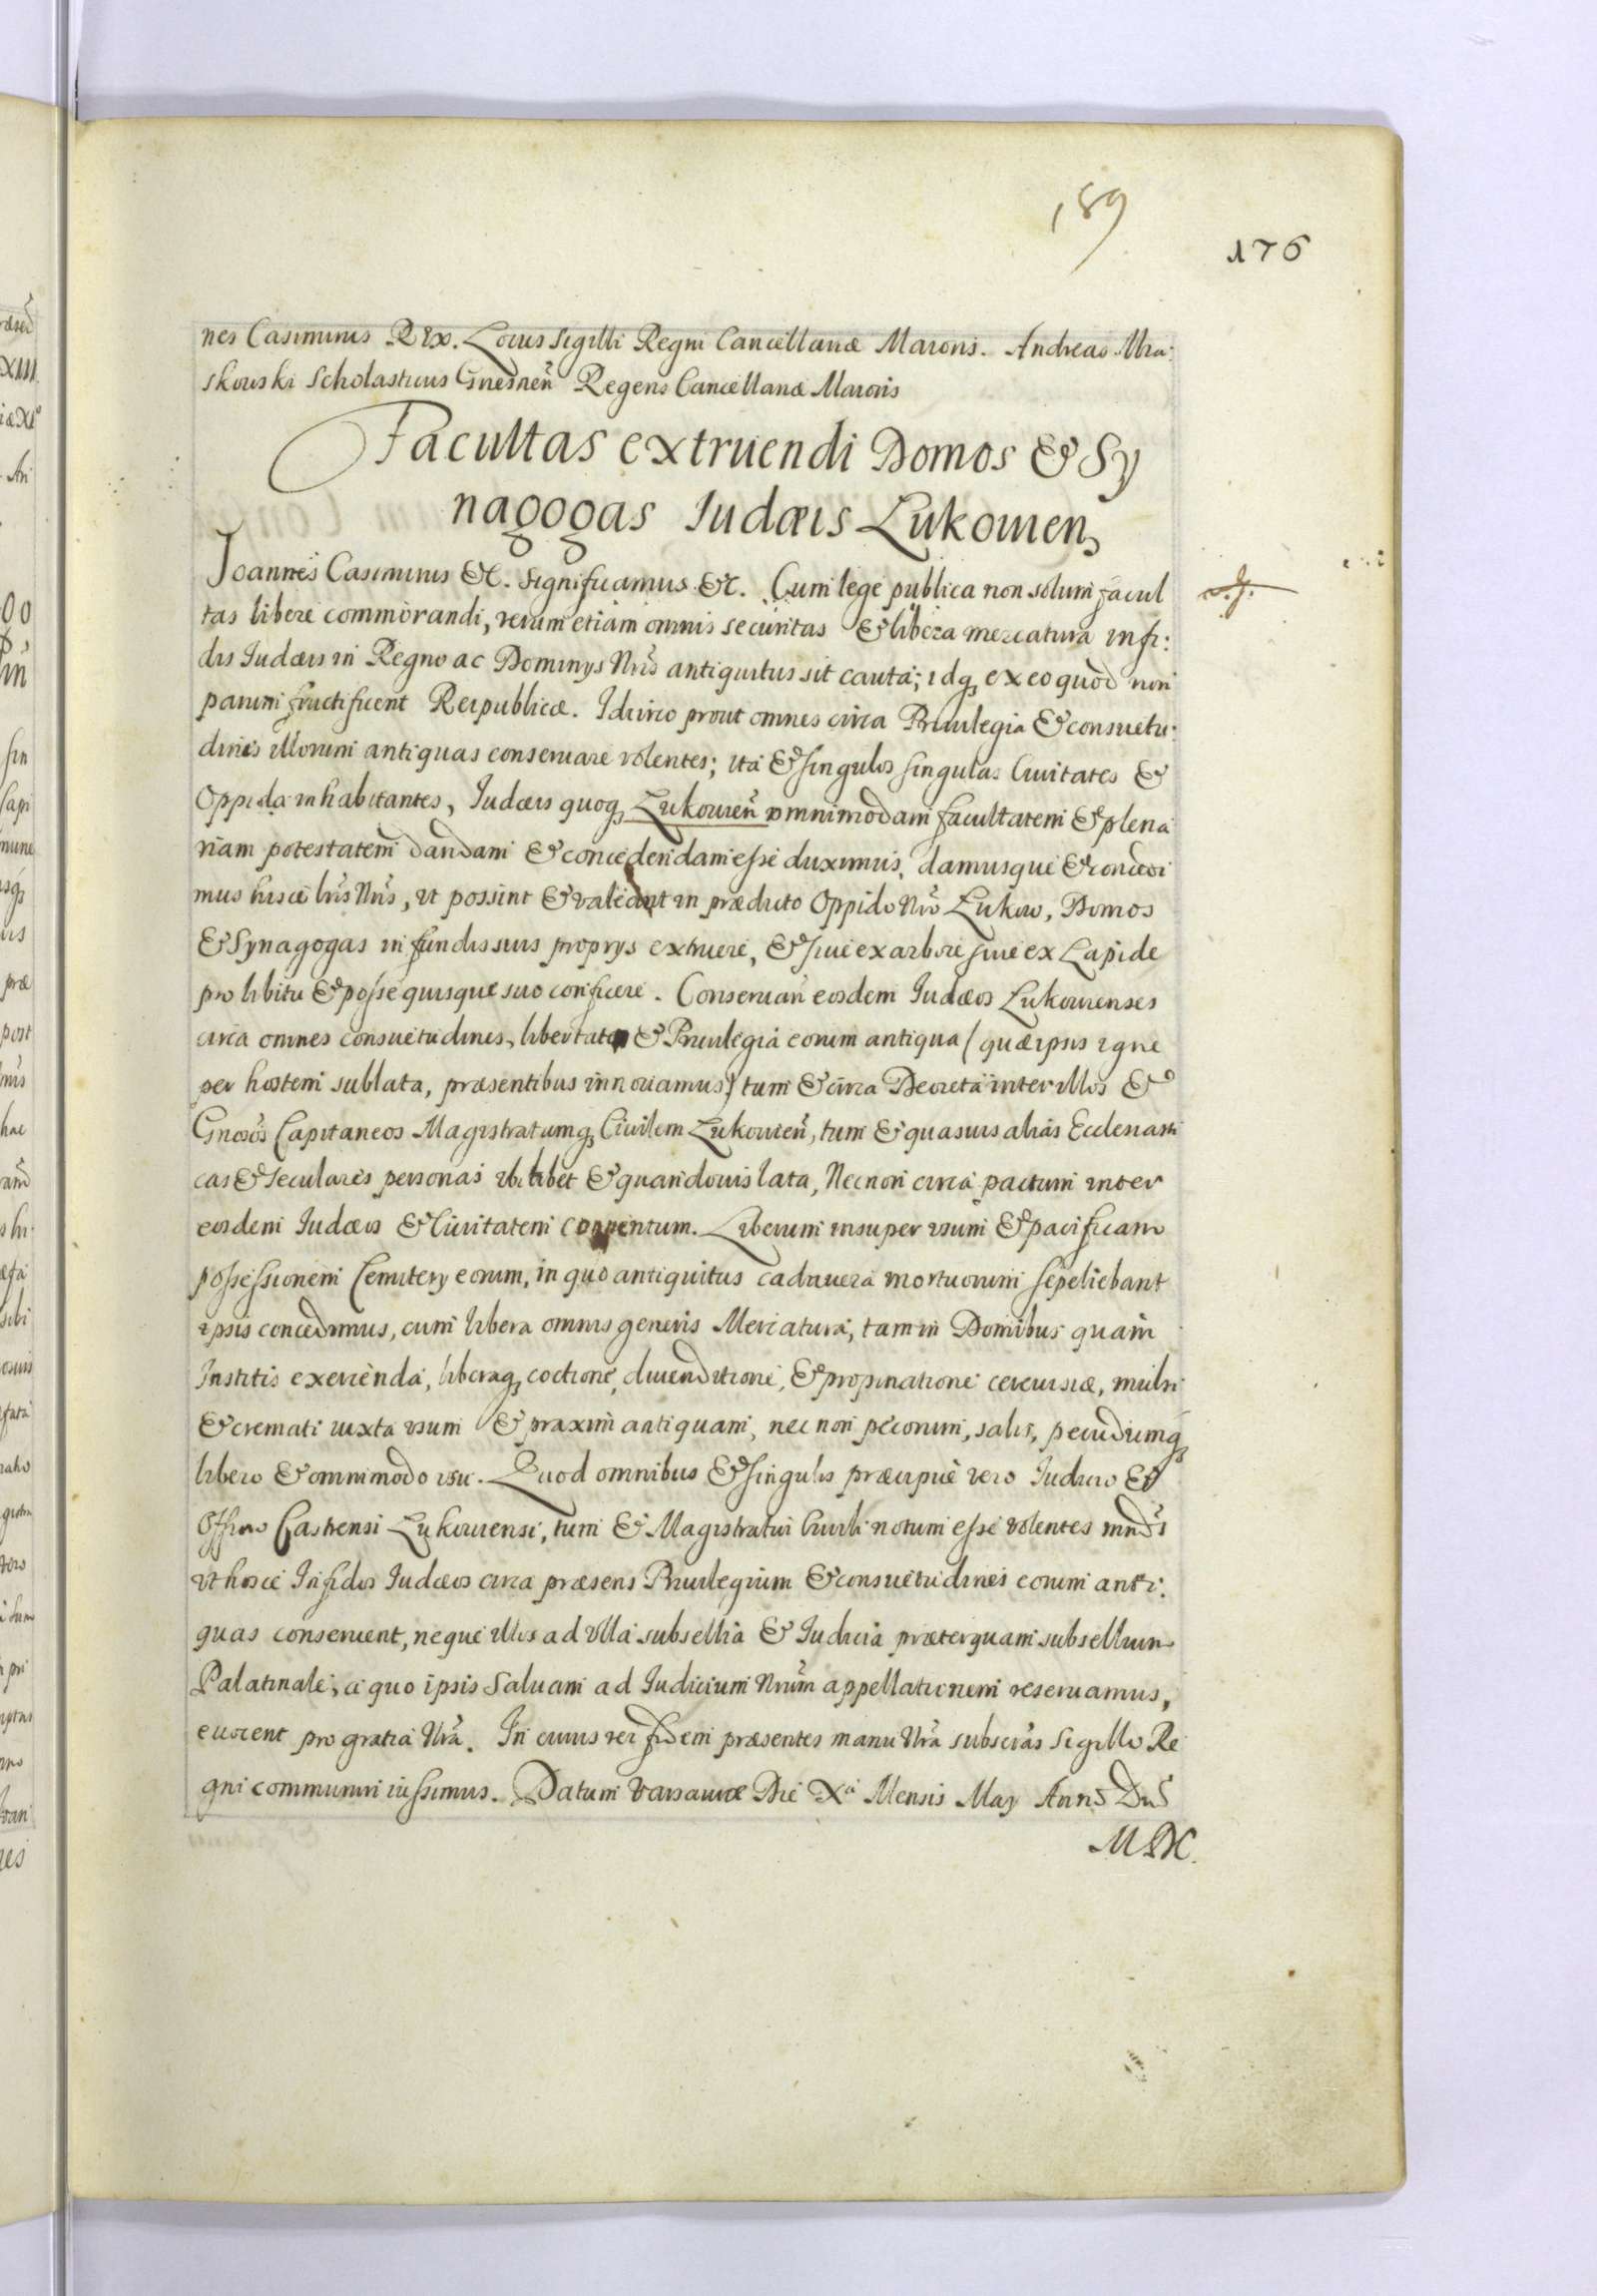 189
176
nes Casimirus REX. Locus Sigilli Regni Cancellariæ Maioris. Andreas Mia:
skowski Scholasticus Gnesnen̄ Regens Cancellariæ Maioris
Facultas extruendi Domos & Sy
nagogas Iudæis Lukowien,
Joannes Casimirus &c. significamus &c. Cum lege publica non solum facul
tas libere commorandi, verum etiam omnis securitas & libera mercatura infi:
dis Iudæis in Regno ac Dominys Nr̄is antiquitus sit cauta; idq, ex eo quod non
parum fructificent Reipublicæ. Idcirco prout omnes circa Priuilegia & consuetu:
dines illorum antiquas conseruare volentes; ita & singulos singulas Ciuitates &
Oppida inhabitantes, Iudæis quoq, Lukowien̄ omnimodam facultatem & plena
riam potestatem dandam & concedendam esse duximus, damusque & concedi
mus hisce lr̄is Nr̄is, vt possint & valeant in prædicto Oppido Nr̄o Lukow, Domos
& Synagogas in fundis suis proprys extruere, & siue ex arbore siue ex Lapide
pro libitu & posse quisque suo conficere. Conseruan̄ eosdem Iudæos Lukowienses
circa omnes consuetudines, libertates & Priuilegia eorum antiqua (quæ ipsis igne
per hostem sublata, præsentibus innouamus) tum & circa Decreta inter illos &
Gnosos Capitaneos Magistratumq, Ciuilem Lukowien̄, tum & quasuis alias Ecclesiasti
cas & seculares personas vbilibet & quandouis lata, Necnon circa pactum inter
eosdem Iudæos & Ciuitatem conuentum. Liberum insuper vsum & pacificam
possessionem Cemitery eorum, in quo antiquitus cadauera mortuorum sepeliebant
ipsis concedimus, cum libera omnis generis Mercatura, tam in Domibus quam
Institis exercenda, liberaq, coctione, diuenditione, & propinatione cereuisiæ, mulsi
& cremati iuxta vsum & praxim antiquam, nec non pecorum, salis, pecudumq,
libero & omnimodo vsu. Quod omnibus & singulis præcipuè vero Iudicio &
Officio Castrensi Lukowiensi, tum & Magistratui Ciuili notum esse volentes mnds
vt hosce Infidos Iudæos circa præsens Priuilegium & consuetudines eorum anti:
quas conseruent, neque illos ad vlla subsellia & Iudicia præterquam subsellium
Palatinale, a quo ipsis saluam ad Iudicium Nr̄um appellationem reseruamus,
euocent pro gratia Nr̄a. In cuius rei fidem præsentes manu Nr̄a subscr̄as Sigillo Re
gni communiri iussimus. Datum Varsauiæ Die Xa Mensis May Anno Dni
MDC.